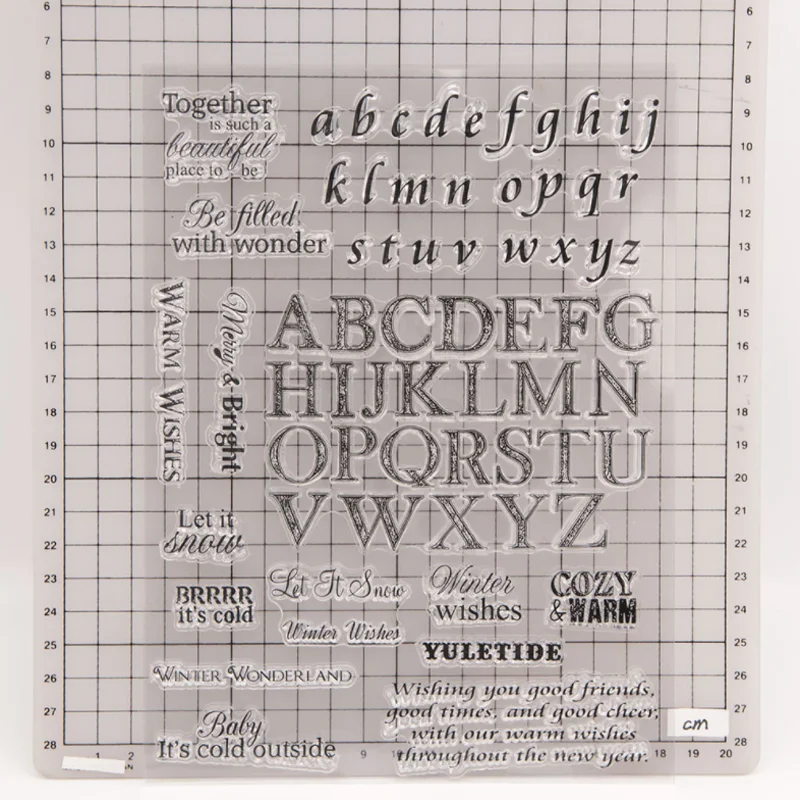 6
7
8
9
10
11
12
13
14
15
16
17
18
19
20
21
22
23
24
25
26
27
28
6
7
8
9
10
11
12
13
14
15
16
17
18
19
20
21
22
23
24
25
26
27
28
Together
is such a
beautiful
place to be
a b c d e f g h i j
k l m n o p q r
s t u v w x y z
Be filled
with wonder
WARM WISHES
Merry & Bright
A B C D E F G
H I J K L M N
O P Q R S T U
V W X Y Z
Let it
snow
BRRRR
it's cold
Let It Snow
Winter Wishes
Winter
wishes
COZY
& WARM
YULETIDE
WINTER WONDERLAND
Baby
It's cold outside
Wishing you good friends,
good times, and good cheer,
with our warm wishes
throughout the new year.
cm
1 2 9 18 19 20